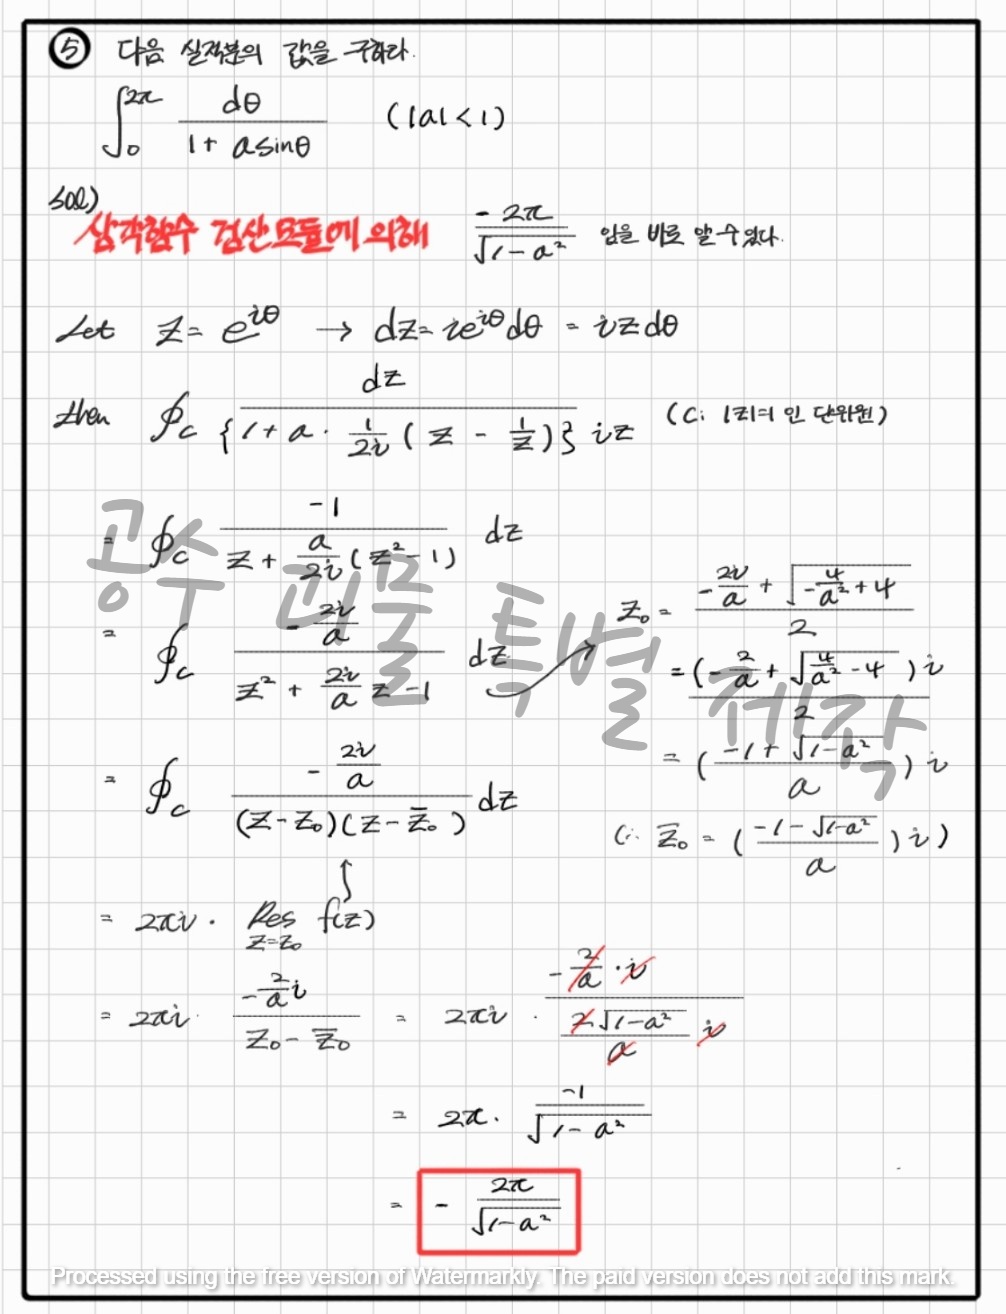 ⑤ 다음 실적분의 값을 구하라.
∫₀^{2π} dθ / (1 + a sinθ) (|a| < 1)
sol)
삼각함수 검산모듈에 의해 -2π / √(1-a²) 임을 바로 알 수 있다.
Let z = e^{iθ} → dz = ie^{iθ}dθ = iz dθ
then ∮_C dz / {1 + a · 1/2i (z - 1/z)} iz (C: |z|=1 인 단위원)
= ∮_C -1 / (z + a/2i (z² - 1)) dz
= ∮_C (-2i/a) / (z² + 2i/a z - 1) dz
z₀ = (-2i/a + √(-4/a² + 4)) / 2
= (-2/a + √(4/a² - 4)) i / 2
= ((-1 + √(1-a²)) / a) i
(∵ z̄₀ = ((-1 - √(1-a²)) / a) i)
= ∮_C (-2i/a) / ((z-z₀)(z-z̄₀)) dz
= 2πi · Res_{z=z₀} f(z)
= 2πi · (-2/a i) / (z₀ - z̄₀) = 2πi · (-2/a · i) / (2√(1-a²)/a i)
= 2π · -1 / √(1-a²)
= - 2π / √(1-a²)
공수 괴물 특별 제작
Processed using the free version of Watermarkly. The paid version does not add this mark.